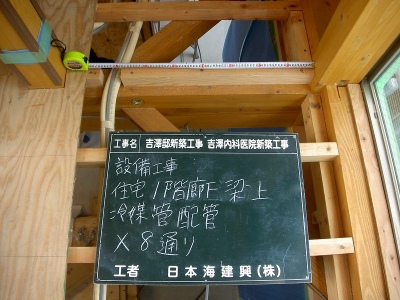 工事名 吉澤邸新築工事 吉澤内科医院新築工事
設備工事
住宅1階廊下梁上
冷媒管配管
X8通り
工者 日本海建興(株)